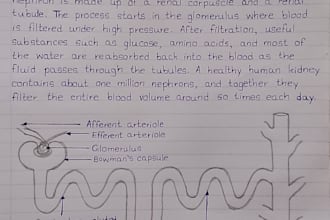 nephron is made up of a renal corpuscle and a renal
tubule. The process starts in the glomerulus where blood
is filtered under high pressure. After filtration, useful
substances such as glucose, amino acids, and most of
the water are reabsorbed back into the blood as the
fluid passes through the tubules. A healthy human kidney
contains about one million nephrons, and together they
filter the entire blood volume around 60 times each day.
Afferent arteriole
Efferent arteriole
Glomerulus
Bowman's capsule